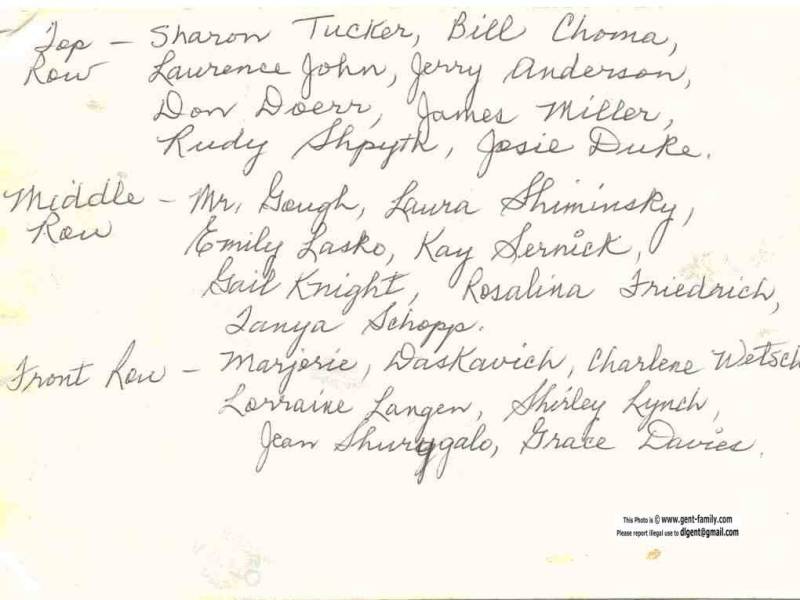 Top - Sharon Tucker, Bill Choma,
Row Laurence John, Jerry Anderson,
Don Doerr, James Miller,
Rudy Shpyth, Josie Duke.
Middle - Mr. Gough, Laura Shiminsky,
Row Emily Lasko, Kay Sernick,
Gail Knight, Rosalina Friedrich,
Tanya Schopp.
Front Row - Marjorie, Daskavich, Charlene Wetsch
Lorraine Langen, Shirley Lynch,
Jean Shurygalo, Grace Davies.
This Photo is © www.gent-family.com
Please report illegal use to digent@gmail.com